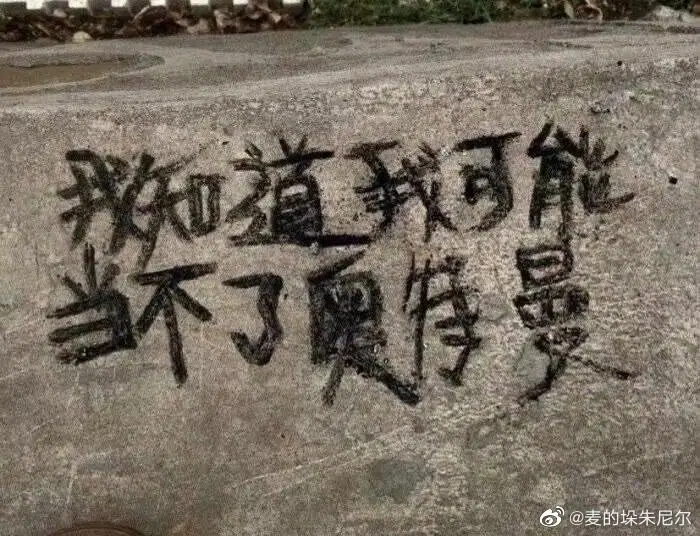 我知道我可能
当不了奥特曼
@麦的垛朱尼尔